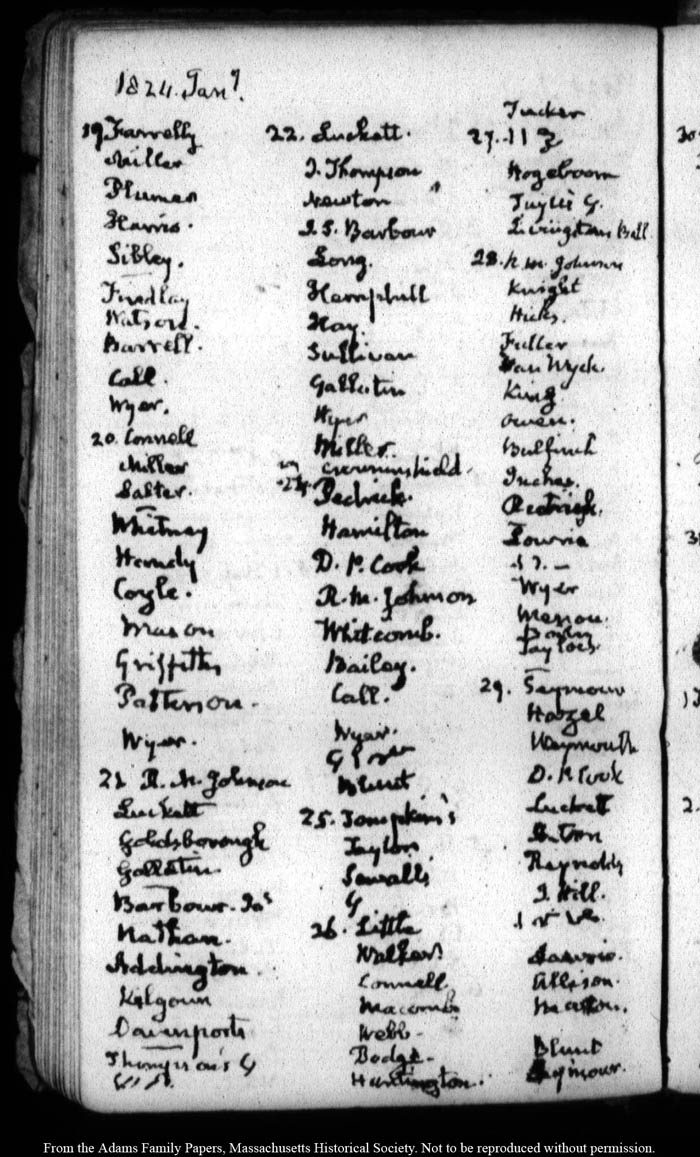 1824. Jany.
19 Farrelly
Miller
Plumer
Harris.
Sibley.
Findlay
Watson.
Barrell.
Call.
Wyer.
20. Connell
Miller
Salter.
Whitney
Handy
Coyle.
Mason
Griffith
Patterson.
Wyer.
21 R. M. Johnson
Luckett
Goldsborough
Gallatin
Barbour. Jas
Nathan.
Addington.
Kilgour
Davenports
Thompson's G
22. Luckett.
J. Thompson
Newton
J. S. Barbour
Long.
Hemphill
Hay.
Sullivan
Gallatin
Wyer
Miller.
Crowninshield.
24. Pedrick.
Hamilton
D. P. Cook
R. M. Johnson
Whitcomb.
Bailey.
Call.
Wyer.
Blunt
25. Tompkins's
Taylor
Sewalls
G
26. Little
Walker
Connell
Macomb
Webb.
Bodge.
Huntington.
Tucker
27.
Hogeboom
Livingston Ball
28. R. M. Johnson
Knight
Hicks.
Fuller
Van Wyck.
King
Owen.
Bulfinch
Inches.
Pedrick.
Lowrie
Wyer
Tayloes
29. Seymour
Hazel
Weymouth
D. P. Cook
Luckett
Reynolds
J. Hill.
Allison.
Blunt
Seymour.
30
31
2.
From the Adams Family Papers, Massachusetts Historical Society. Not to be reproduced without permission.